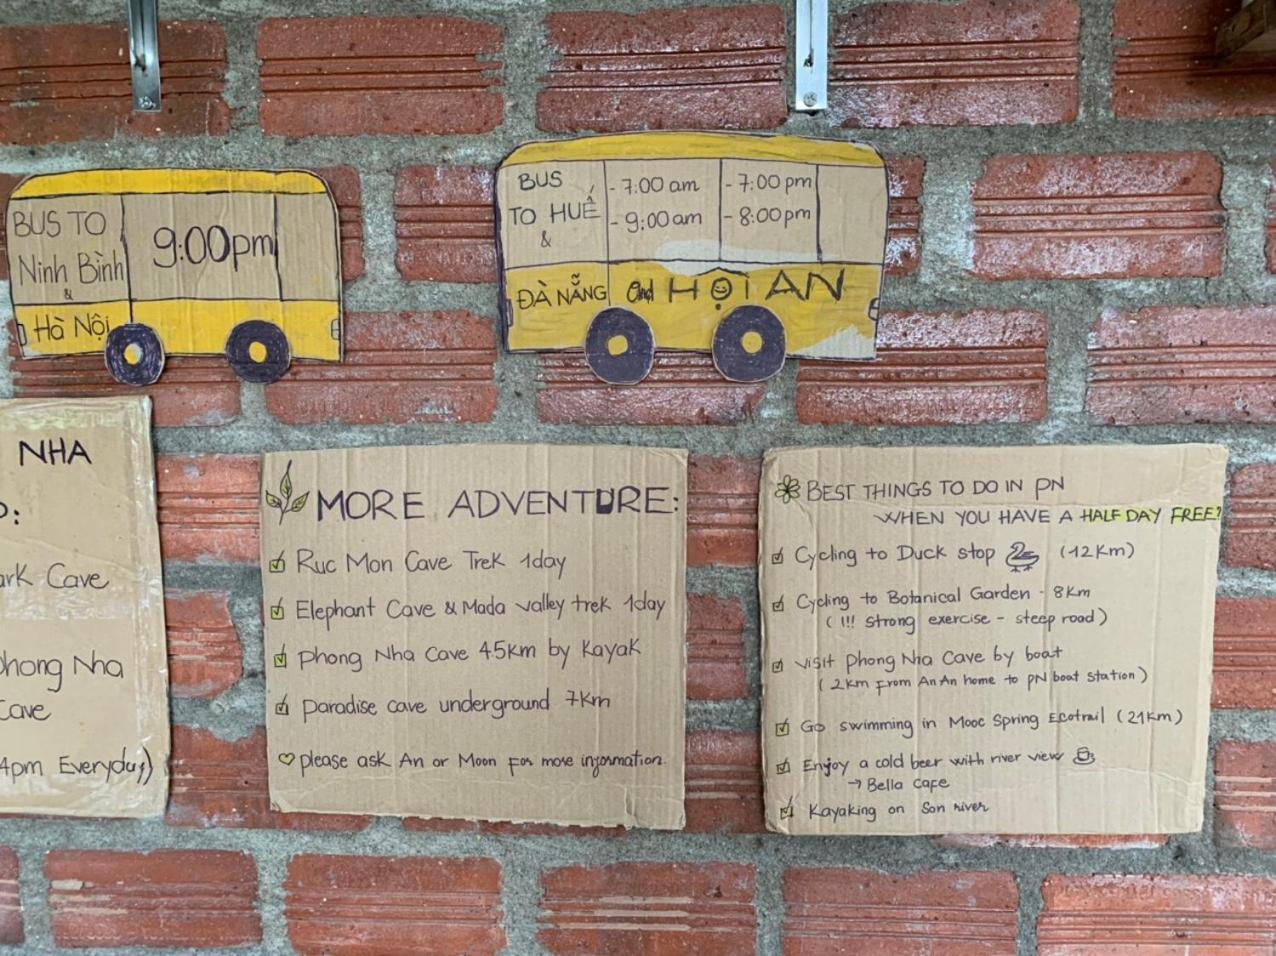 BUS TO
Ninh Bình
&
Hà Nội
9:00pm
BUS
TO HUẾ
&
- 7:00 am
- 9:00 am
- 7:00 pm
- 8:00 pm
ĐÀ NẴNG and HỘI AN
NHA
ark Cave
phong Nha
Cave
4pm Everyday)
MORE ADVENTURE:
Ruc Mon Cave Trek 1day
Elephant Cave & Mada valley trek 1day
phong Nha Cave 4.5km by Kayak
paradise cave underground 7km
please ask An or Moon for more information.
BEST THINGS TO DO IN PN
WHEN YOU HAVE A HALF DAY FREE?
Cycling to Duck stop (12km)
Cycling to Botanical Garden - 8km
( !!! strong exercise - steep road )
visit phong Nha Cave by boat
( 2km from An An home to pN boat station )
Go swimming in Mooc Spring Ecotrail (21km)
Enjoy a cold beer with river view
→ Bella Cafe
Kayaking on Son river